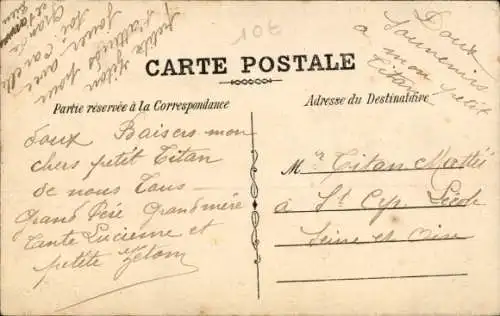 106
Doux
Souvenirs
a mon petit
Titan
CARTE POSTALE
Partie réservée à la Correspondance
Adresse du Destinataire
Doux Baisers mon
chers petit Titan
de nous Tous
Grand Père Grand mère
Tante Lucienne et
petite
M Titan Mattéi
à St Cyr l'École
Seine et Oise
petite
pour
avec